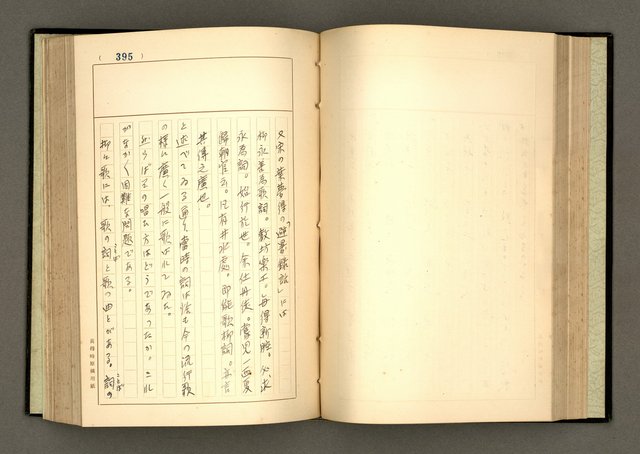 (395)
又宋の葉夢得の「避暑録話」には
柳永善為歌詞。教坊楽工。毎得新腔。必求
永為詞。始行於世。余仕丹徒。嘗見一西夏
歸朝官云。凡有井水處。即能歌柳詞。言
其傳之廣也。
と述べてゐる通り、當時の詞は恰も今の流行歌
の様に廣く一般に歌はれてゐた。
然らばその唱ひ方はどうであつたか。これ
がなかく困難な問題である。
抑も歌には、歌の詞と歌の曲とがある。詞の
ことば
ことば
黃得時原稿用紙